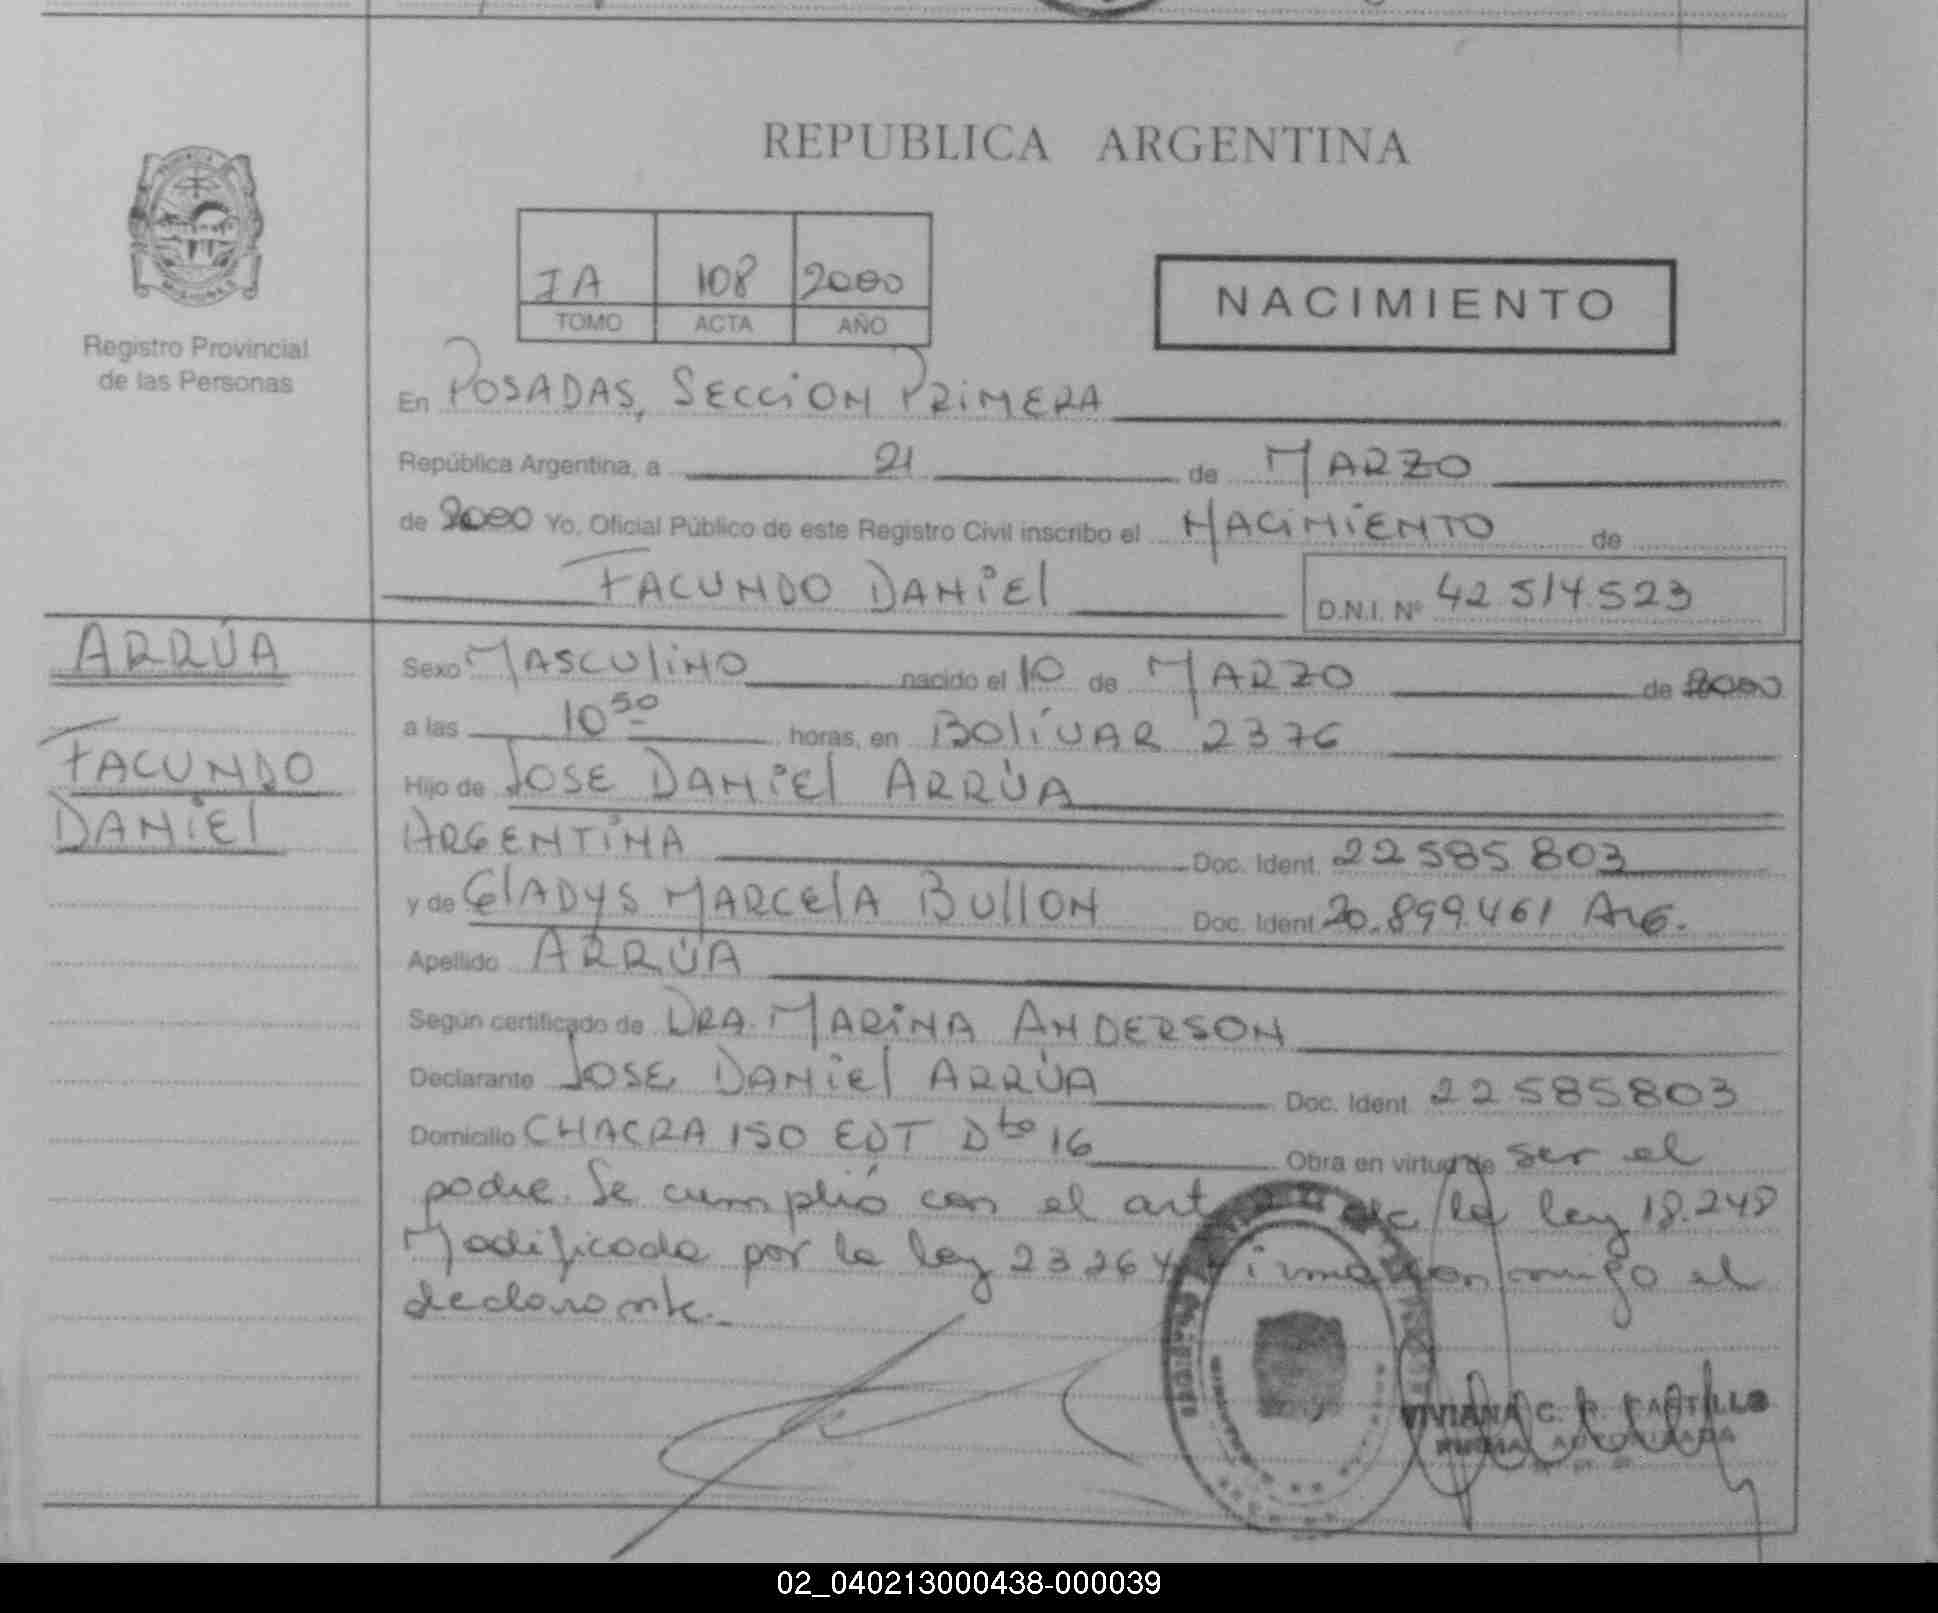 REPUBLICA ARGENTINA
IA 108 2000
TOMO ACTA AÑO
NACIMIENTO
Registro Provincial
de las Personas
En POSADAS, SECCION PRIMERA
República Argentina, a 21 de MARZO
de 2000 Yo, Oficial Público de este Registro Civil inscribo el NACIMIENTO de
FACUNDO DANIEL D.N.I. Nº 42 514.523
ARRÚA
FACUNDO
DANIEL
Sexo MASCULINO nacido el 10 de MARZO de 2000
a las 10 50 horas, en BOLÍVAR 2376
Hijo de JOSE DANIEL ARRÚA
ARGENTINA Doc. Ident. 22 585 803
y de GLADYS MARCELA BULLON Doc. Ident. 20.899.461 ARG.
Apellido ARRÚA
Según certificado de DRA. MARINA ANDERSON
Declarante JOSE DANIEL ARRÚA Doc. Ident. 22 585803
Domicilio CHACRA 150 EDT Dto 16 Obra en virtud de ser el
padre. Se cumplió con el art de la ley 18.248
Modificada por la ley 23264 Firmando conmigo el
declarante.-
VIVIANA C. CASTILLO
FIRMA AUTORIZADA
02_040213000438-000039